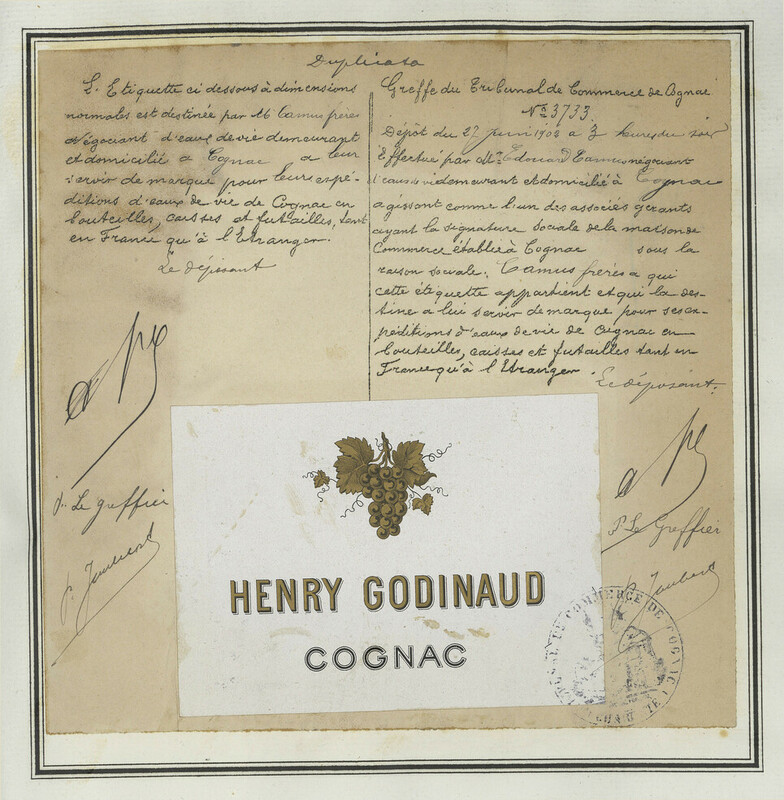 Duplicata
L'Etiquette ci dessous à dimensions
normales est destinée par M Camus frères
Négociant d'eaux de vie demeurant
et domicilié à Cognac a leur
servir de marque pour leurs expé-
ditions d'eaux de vie de Cognac en
bouteilles, caisses et futailles, tant
en France qu'à l'Etranger.
Le déposant
P. Le greffier
Greffe du Tribunal de Commerce de Cognac
No 3733
Dépôt du 27 juin 1902 à 3 heures du soir
Effectué par Mr. Edouard Camus négociant
d'eaux de vie demeurant et domicilié à Cognac
agissant comme l'un des associés gérants
ayant la signature sociale de la maison de
Commerce établie à Cognac sous la
raison sociale: Camus frères a qui
cette étiquette appartient et qui la des-
tine a lui servir de marque pour ses ex-
péditions d'eaux de vie de Cognac en
bouteilles, caisses et futailles tant en
France qu'à l'Etranger.
Le déposant.
P. Le Greffier
P. Joubert
HENRY GODINAUD
COGNAC
DE COMMERCE DE COGNAC